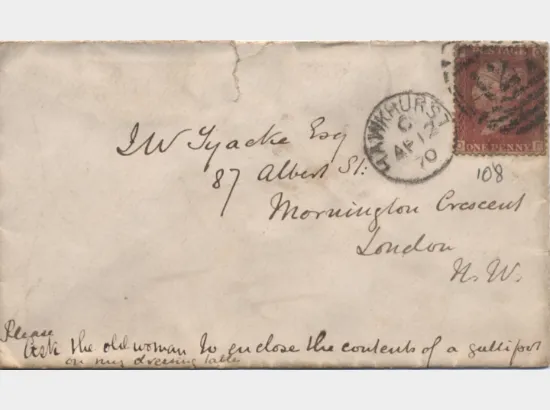 POSTAGE
ONE PENNY
HAWKHURST
C
AP 2
70
108
J W Tyacke Esq
87 Albert St:
Mornington Crescent
London
N.W.
Please
Ask the old woman to enclose the contents of a gallipot
on my dressing table